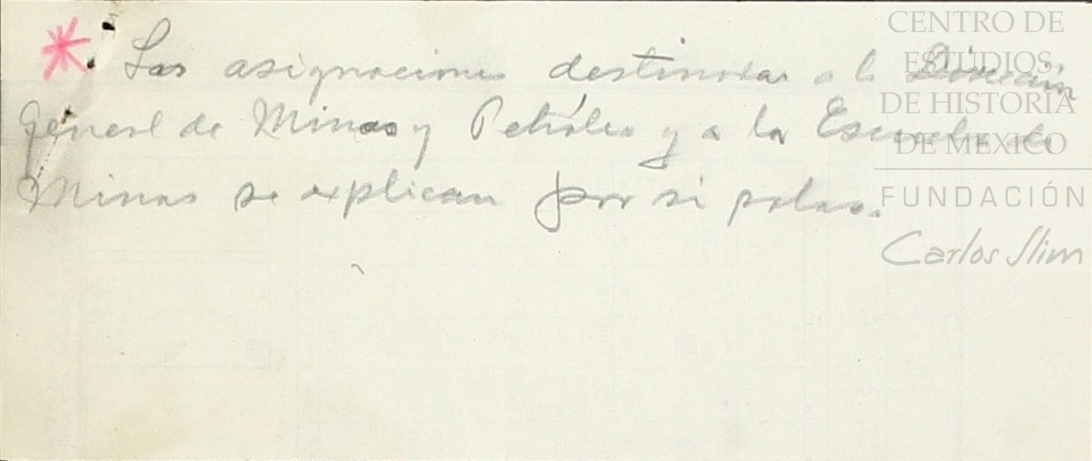 * Las asignaciones destinadas a la Dirección
General de Minas y Petróleo y a la Escuela de
Minas se explican por si solas.
CENTRO DE
ESTUDIOS
DE HISTORIA
DE MEXICO
FUNDACIÓN
Carlos Slim